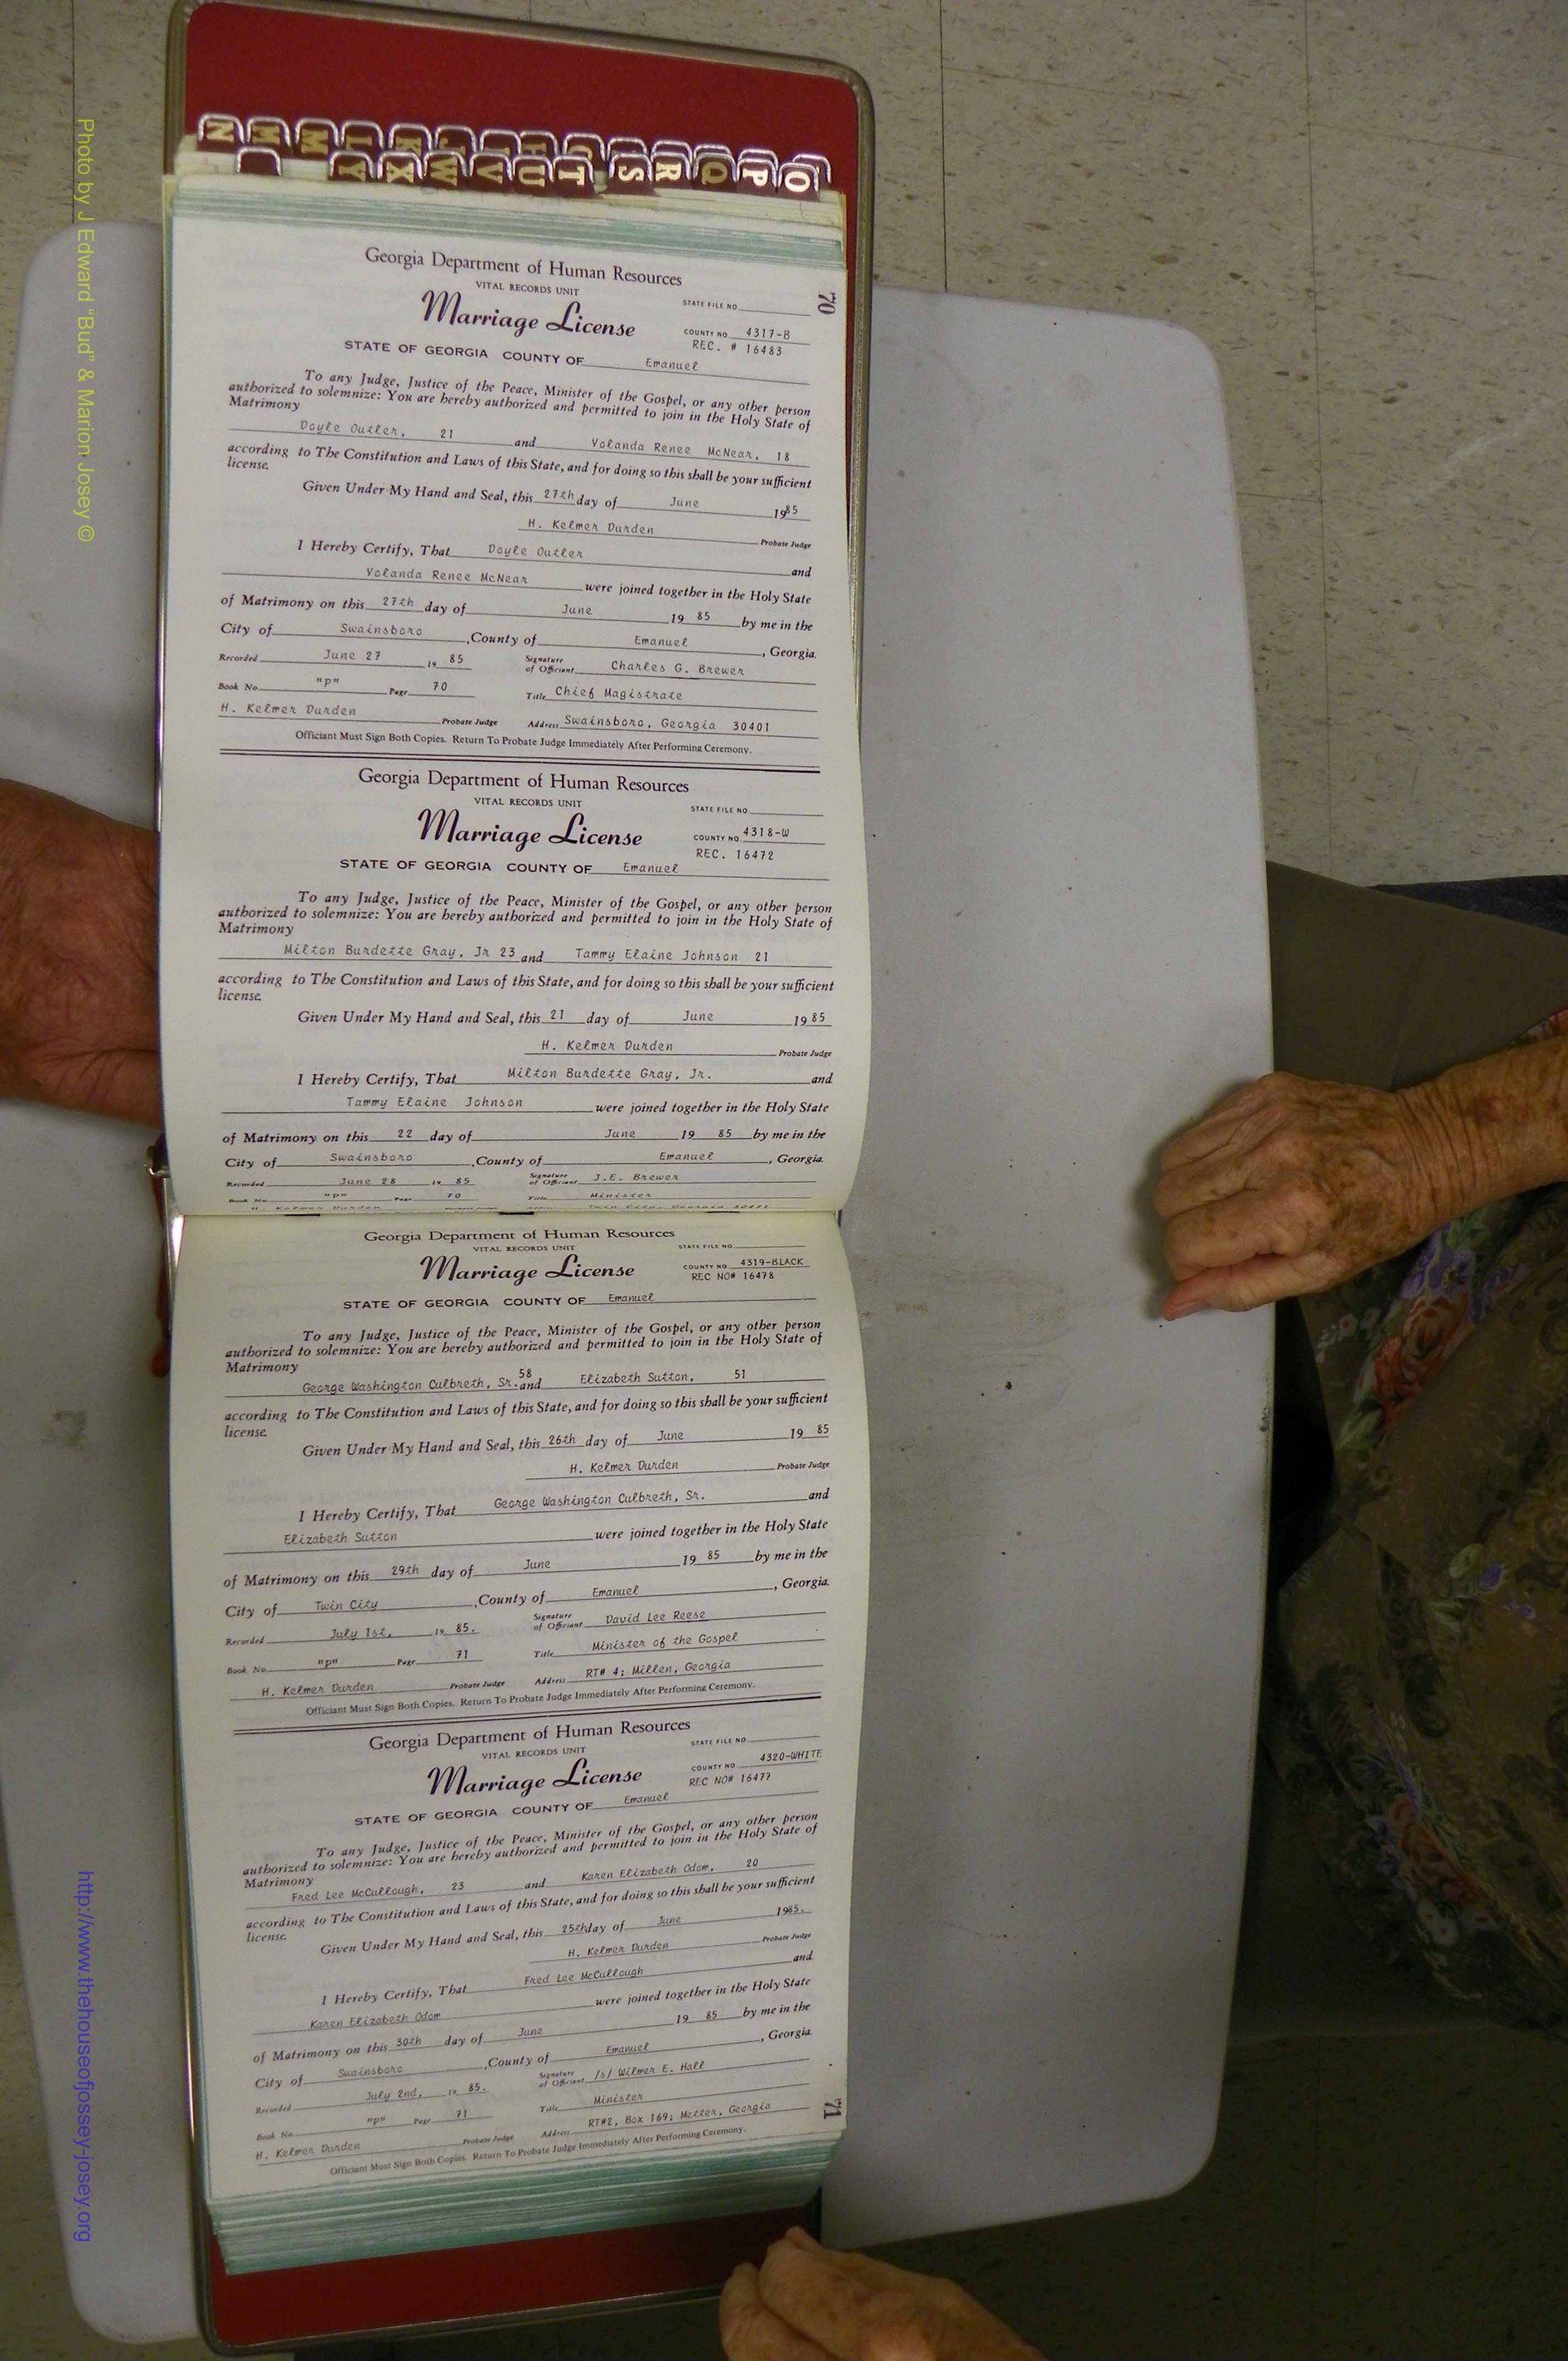 Photo by J Edward "Bud" & Marion Josey ©
http://www.thehouseofjossey-josey.org
N M M L K J I H G
Y X W V U T S R Q P O
70
Georgia Department of Human Resources
VITAL RECORDS UNIT
STATE FILE NO
Marriage License
COUNTY NO. 4317-B
REC. # 16483
STATE OF GEORGIA COUNTY OF Emanuel
To any Judge, Justice of the Peace, Minister of the Gospel, or any other person
authorized to solemnize: You are hereby authorized and permitted to join in the Holy State of
Matrimony
Doyle Outler, 21 and Volanda Renee McNear, 18
according to The Constitution and Laws of this State, and for doing so this shall be your sufficient
license.
Given Under My Hand and Seal, this 27th day of June 1985
H. Kelmer Durden Probate Judge
I Hereby Certify, That Doyle Outler and
Volanda Renee McNear were joined together in the Holy State
of Matrimony on this 27th day of June 19 85 by me in the
City of Swainsboro, County of Emanuel, Georgia.
Recorded June 27 19 85 Signature of Officiant Charles G. Brewer
Book No. "p" Page 70 Title Chief Magistrate
H. Kelmer Durden Probate Judge Address Swainsboro, Georgia 30401
Officiant Must Sign Both Copies. Return To Probate Judge Immediately After Performing Ceremony.
Georgia Department of Human Resources
VITAL RECORDS UNIT
STATE FILE NO
Marriage License
COUNTY NO. 4318-W
REC. 16472
STATE OF GEORGIA COUNTY OF Emanuel
To any Judge, Justice of the Peace, Minister of the Gospel, or any other person
authorized to solemnize: You are hereby authorized and permitted to join in the Holy State of
Matrimony
Milton Burdette Gray, Jr 23 and Tammy Elaine Johnson 21
according to The Constitution and Laws of this State, and for doing so this shall be your sufficient
license.
Given Under My Hand and Seal, this 21 day of June 19 85
H. Kelmer Durden Probate Judge
I Hereby Certify, That Milton Burdette Gray, Jr. and
Tammy Elaine Johnson were joined together in the Holy State
of Matrimony on this 22 day of June 19 85 by me in the
City of Swainsboro, County of Emanuel, Georgia.
Recorded June 28 19 85 Signature of Officiant J.E. Brewer
Book No "p" Page 70 Title Minister
H. Kelmer Durden Twin City, Georgia 30471
Georgia Department of Human Resources
VITAL RECORDS UNIT
STATE FILE NO
Marriage License
COUNTY NO. 4319-BLACK
REC NO# 16478
STATE OF GEORGIA COUNTY OF Emanuel
To any Judge, Justice of the Peace, Minister of the Gospel, or any other person
authorized to solemnize: You are hereby authorized and permitted to join in the Holy State of
Matrimony
George Washington Culbreth, Sr. 58 and Elizabeth Sutton, 51
according to The Constitution and Laws of this State, and for doing so this shall be your sufficient
license.
Given Under My Hand and Seal, this 26th day of June 19 85
H. Kelmer Durden Probate Judge
I Hereby Certify, That George Washington Culbreth, Sr. and
Elizabeth Sutton were joined together in the Holy State
of Matrimony on this 29th day of June 19 85 by me in the
City of Twin City, County of Emanuel, Georgia.
Recorded July 1st, 19 85. Signature of Officiant David Lee Reese
Book No. "p" Page 71 Title Minister of the Gospel
H. Kelmer Durden Probate Judge Address RT# 4; Millen, Georgia
Officiant Must Sign Both Copies. Return To Probate Judge Immediately After Performing Ceremony.
Georgia Department of Human Resources
VITAL RECORDS UNIT
STATE FILE NO
Marriage License
COUNTY NO 4320-WHITE
REC NO# 16477
STATE OF GEORGIA COUNTY OF Emanuel
To any Judge, Justice of the Peace, Minister of the Gospel, or any other person
authorized to solemnize: You are hereby authorized and permitted to join in the Holy State of
Matrimony
Fred Lee McCullough, 23 and Karen Elizabeth Odom, 20
according to The Constitution and Laws of this State, and for doing so this shall be your sufficient
license.
Given Under My Hand and Seal, this 25th day of June 1985.
H. Kelmer Durden Probate Judge
I Hereby Certify, That Fred Lee McCullough and
Karen Elizabeth Odom were joined together in the Holy State
of Matrimony on this 30th day of June 19 85 by me in the
City of Swainsboro, County of Emanuel, Georgia.
Recorded July 2nd, 19 85. Signature of Officiant /s/ Wilmer E. Hall
Book No. "p" Page 71 Title Minister
H. Kelmer Durden Probate Judge Address RT#2, Box 169; Metter, Georgia
Officiant Must Sign Both Copies. Return To Probate Judge Immediately After Performing Ceremony.
71